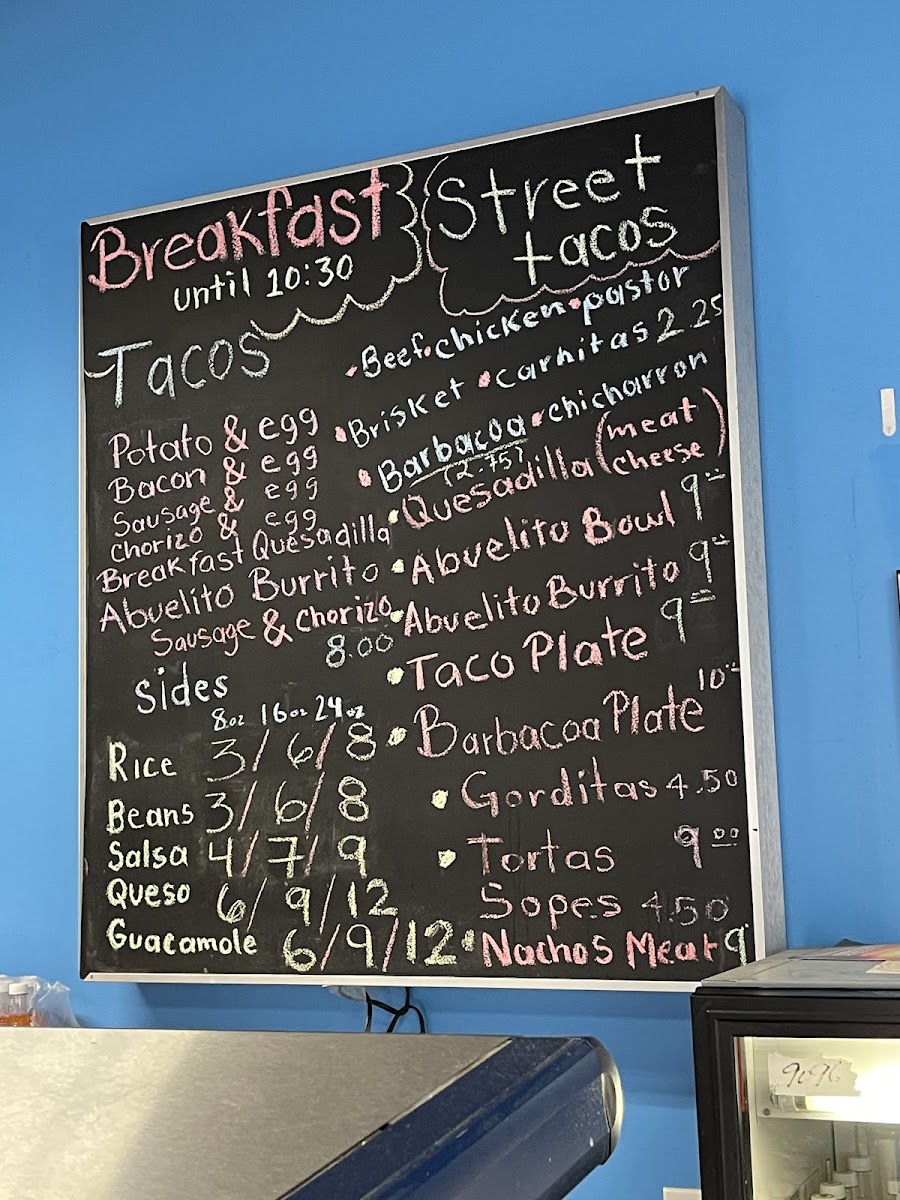 Breakfast
until 10:30
Tacos
Potato & egg
Bacon & egg
Sausage & egg
Chorizo & egg
Breakfast Quesadilla
Abuelito Burrito
Sausage & Chorizo
8.00
Sides
8oz 16oz 24oz
Rice 3/6/8
Beans 3/6/8
Salsa 4/7/9
Queso 6/9/12
Guacamole 6/9/12
Street
tacos
Beef • chicken • pastor
Brisket • carnitas 2.25
Barbacoa • chicharron
(2.75)
Quesadilla (meat cheese) 9.00
Abuelito Bowl 9.00
Abuelito Burrito 9.00
Taco Plate
Barbacoa Plate 10.00
Gorditas 4.50
Tortas 9.00
Sopes 4.50
Nachos Meat 9
9096